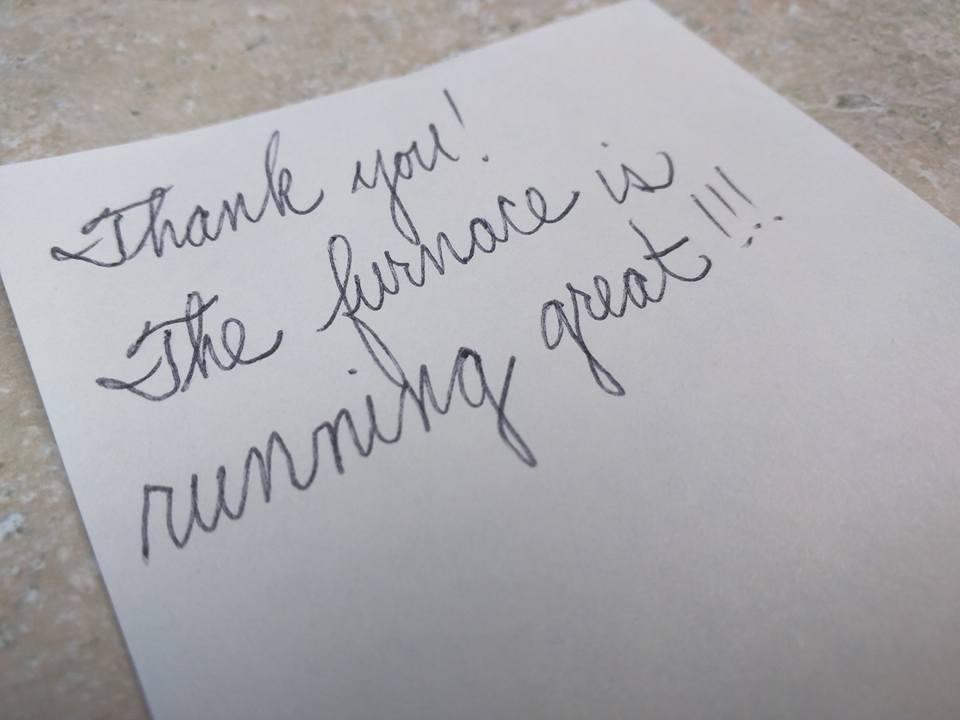 Thank you!
The furnace is
running great!!!